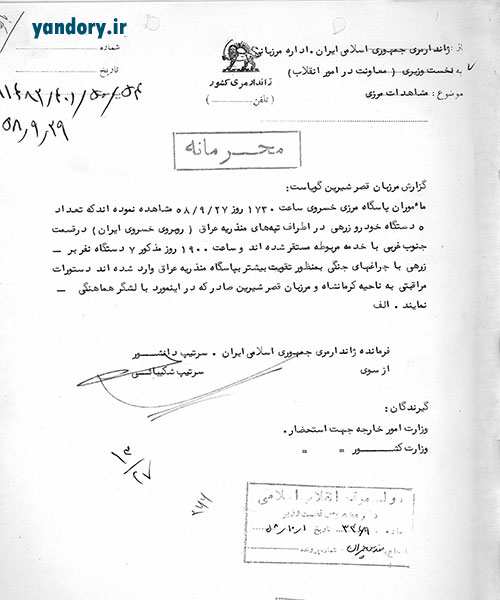 yandory.ir
از: ژاندارمری جمهوری اسلامی ایران . اداره مرزبانی
به نخست وزیری ( معاونت در امور انقلاب )
موضوع : مشاهدات مرزی
ژاندارمری کشور
( تلفن ............ )
شماره
تاریخ
۵۸٫۹٫۲۹
محرمانه
گزارش مرزبان قصر شیرین گویاست:
مأموران پاسگاه مرزی خسروی ساعت ۱۷۳۰ روز ۵۸/۹/۲۷ مشاهده نموده اند که تعداد
۵ دستگاه خودرو زرهی در اطراف تپه‌های منذریه عراق ( روبروی خسروی ایران ) در قسمت
جنوب غربی با خدمه مربوطه مستقر شده اند و ساعت ۱۹۰۰ روز مذکور ۷ دستگاه نفر بر –
زرهی با چراغهای جنگی بمنظور تقویت بیشتر بپاسگاه منذریه عراق وارد شده اند دستورات
مراقبتی به ناحیه کرمانشاه و مرزبان قصر شیرین صادر که در اینمورد با لشگر هماهنگی –
نمایند . الف
فرمانده ژاندارمری جمهوری اسلامی ایران . سرتیپ دانشور
از سوی سرتیپ شکیبائی
گیرندگان :
وزارت امور خارجه جهت استحضار .
وزارت کشور " "
۱۳/۲۷
۲۶۶
دولت موقت انقلاب اسلامی
شماره ۳۳۶۹ تاریخ ۵۸/۱۰/۱
شماره پرونده